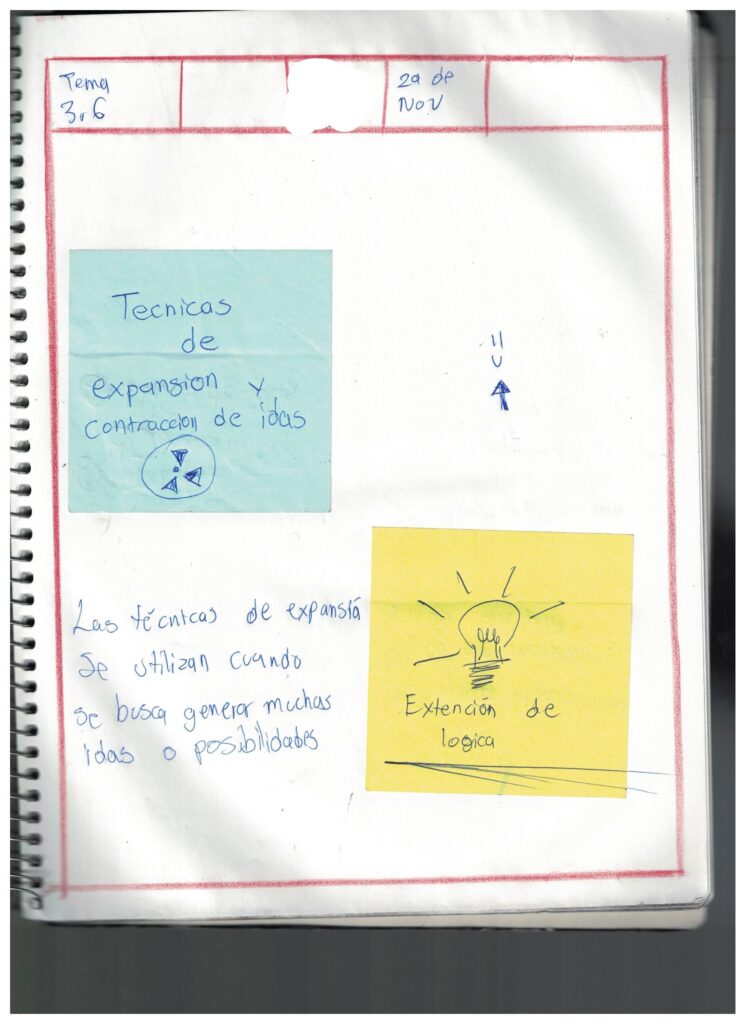 Tema
3.6
29 de
Nov
Tecnicas
de
expansion y
contraccion de idas
Las técnicas de expansiá
se utilizan cuando
se busca generar muchas
idas o posibilidades
Extención de
logica